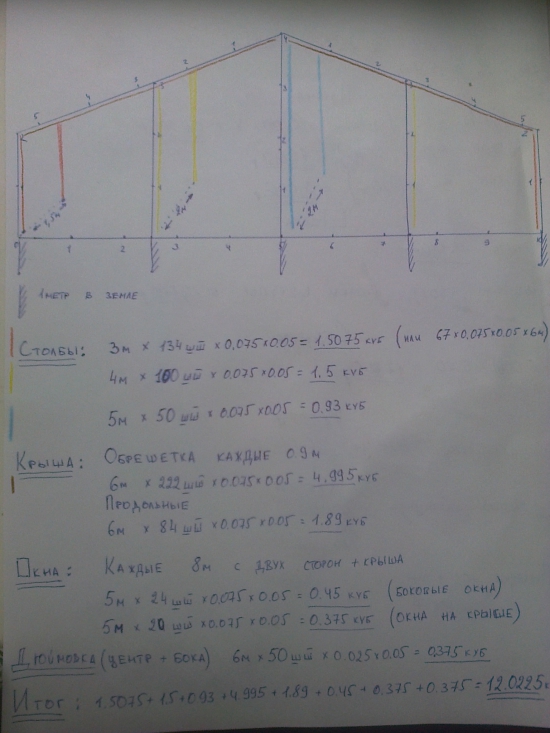 5 4 3 2 1 1 2 3 4 5
1.5м
2м
2м
0 1 2 3 4 5 6 7 8 9 10
1 метр в земле
Столбы: 3м × 134 шт × 0,075×0.05 = 1.5075 куб (или 67×0,075×0.05×6м)
4м × 100 шт × 0.075×0.05 = 1.5 куб
5м × 50 шт × 0.075×0.05 = 0.93 куб
Крыша: Обрешетка каждые 0.9м
6м × 222 шт × 0.075×0.05 = 4.995 куб
Продольные
6м × 84 шт × 0.075×0.05 = 1.89 куб
Окна: Каждые 8м с двух сторон + крыша
5м × 24 шт × 0.075×0.05 = 0.45 куб (боковые окна)
5м × 20 шт × 0.075×0.05 = 0.375 куб (окна на крыше)
Дюймовка (центр + бока) 6м × 50 шт × 0.025×0.05 = 0,375 куб
Итог: 1.5075 + 1.5 + 0.93 + 4.995 + 1.89 + 0.45 + 0.375 + 0.375 = 12.0225к